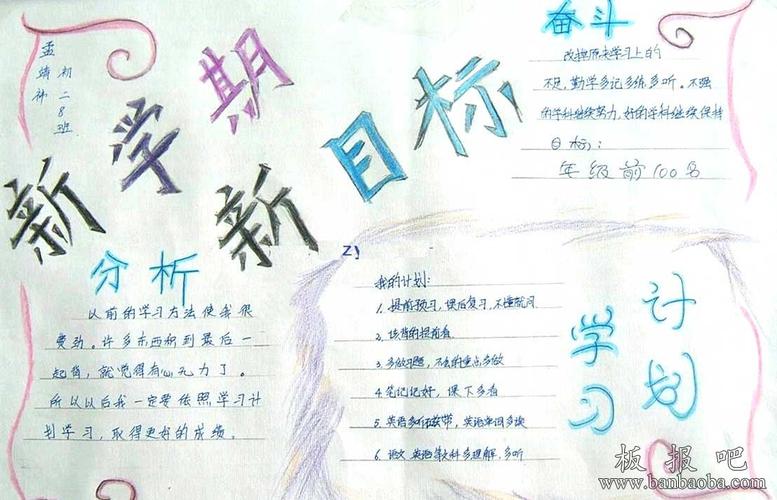 孟婧
初二8班
新学期
新目标
奋斗
改掉原来学习上的
不足，勤学多记多练多听。不强
的学科继续努力，好的学科继续保持
目标：
年级前100名
分析
以前的学习方法使我很
费劲。许多东西积到最后一
起背，就觉得有心无力了。
所以以后我一定要依照学习计
划学习，取得更好的成绩。
我的计划：
1. 提前预习，课后复习，不懂就问
2. 该背的提前背
3. 多做习题，不会的重点多做
4. 笔记记好，课下多看
5. 英语多听磁带，英语单词多读
6. 语文 英语等文科多理解，多听
学习
计划
板报吧
www.banbaoba.com